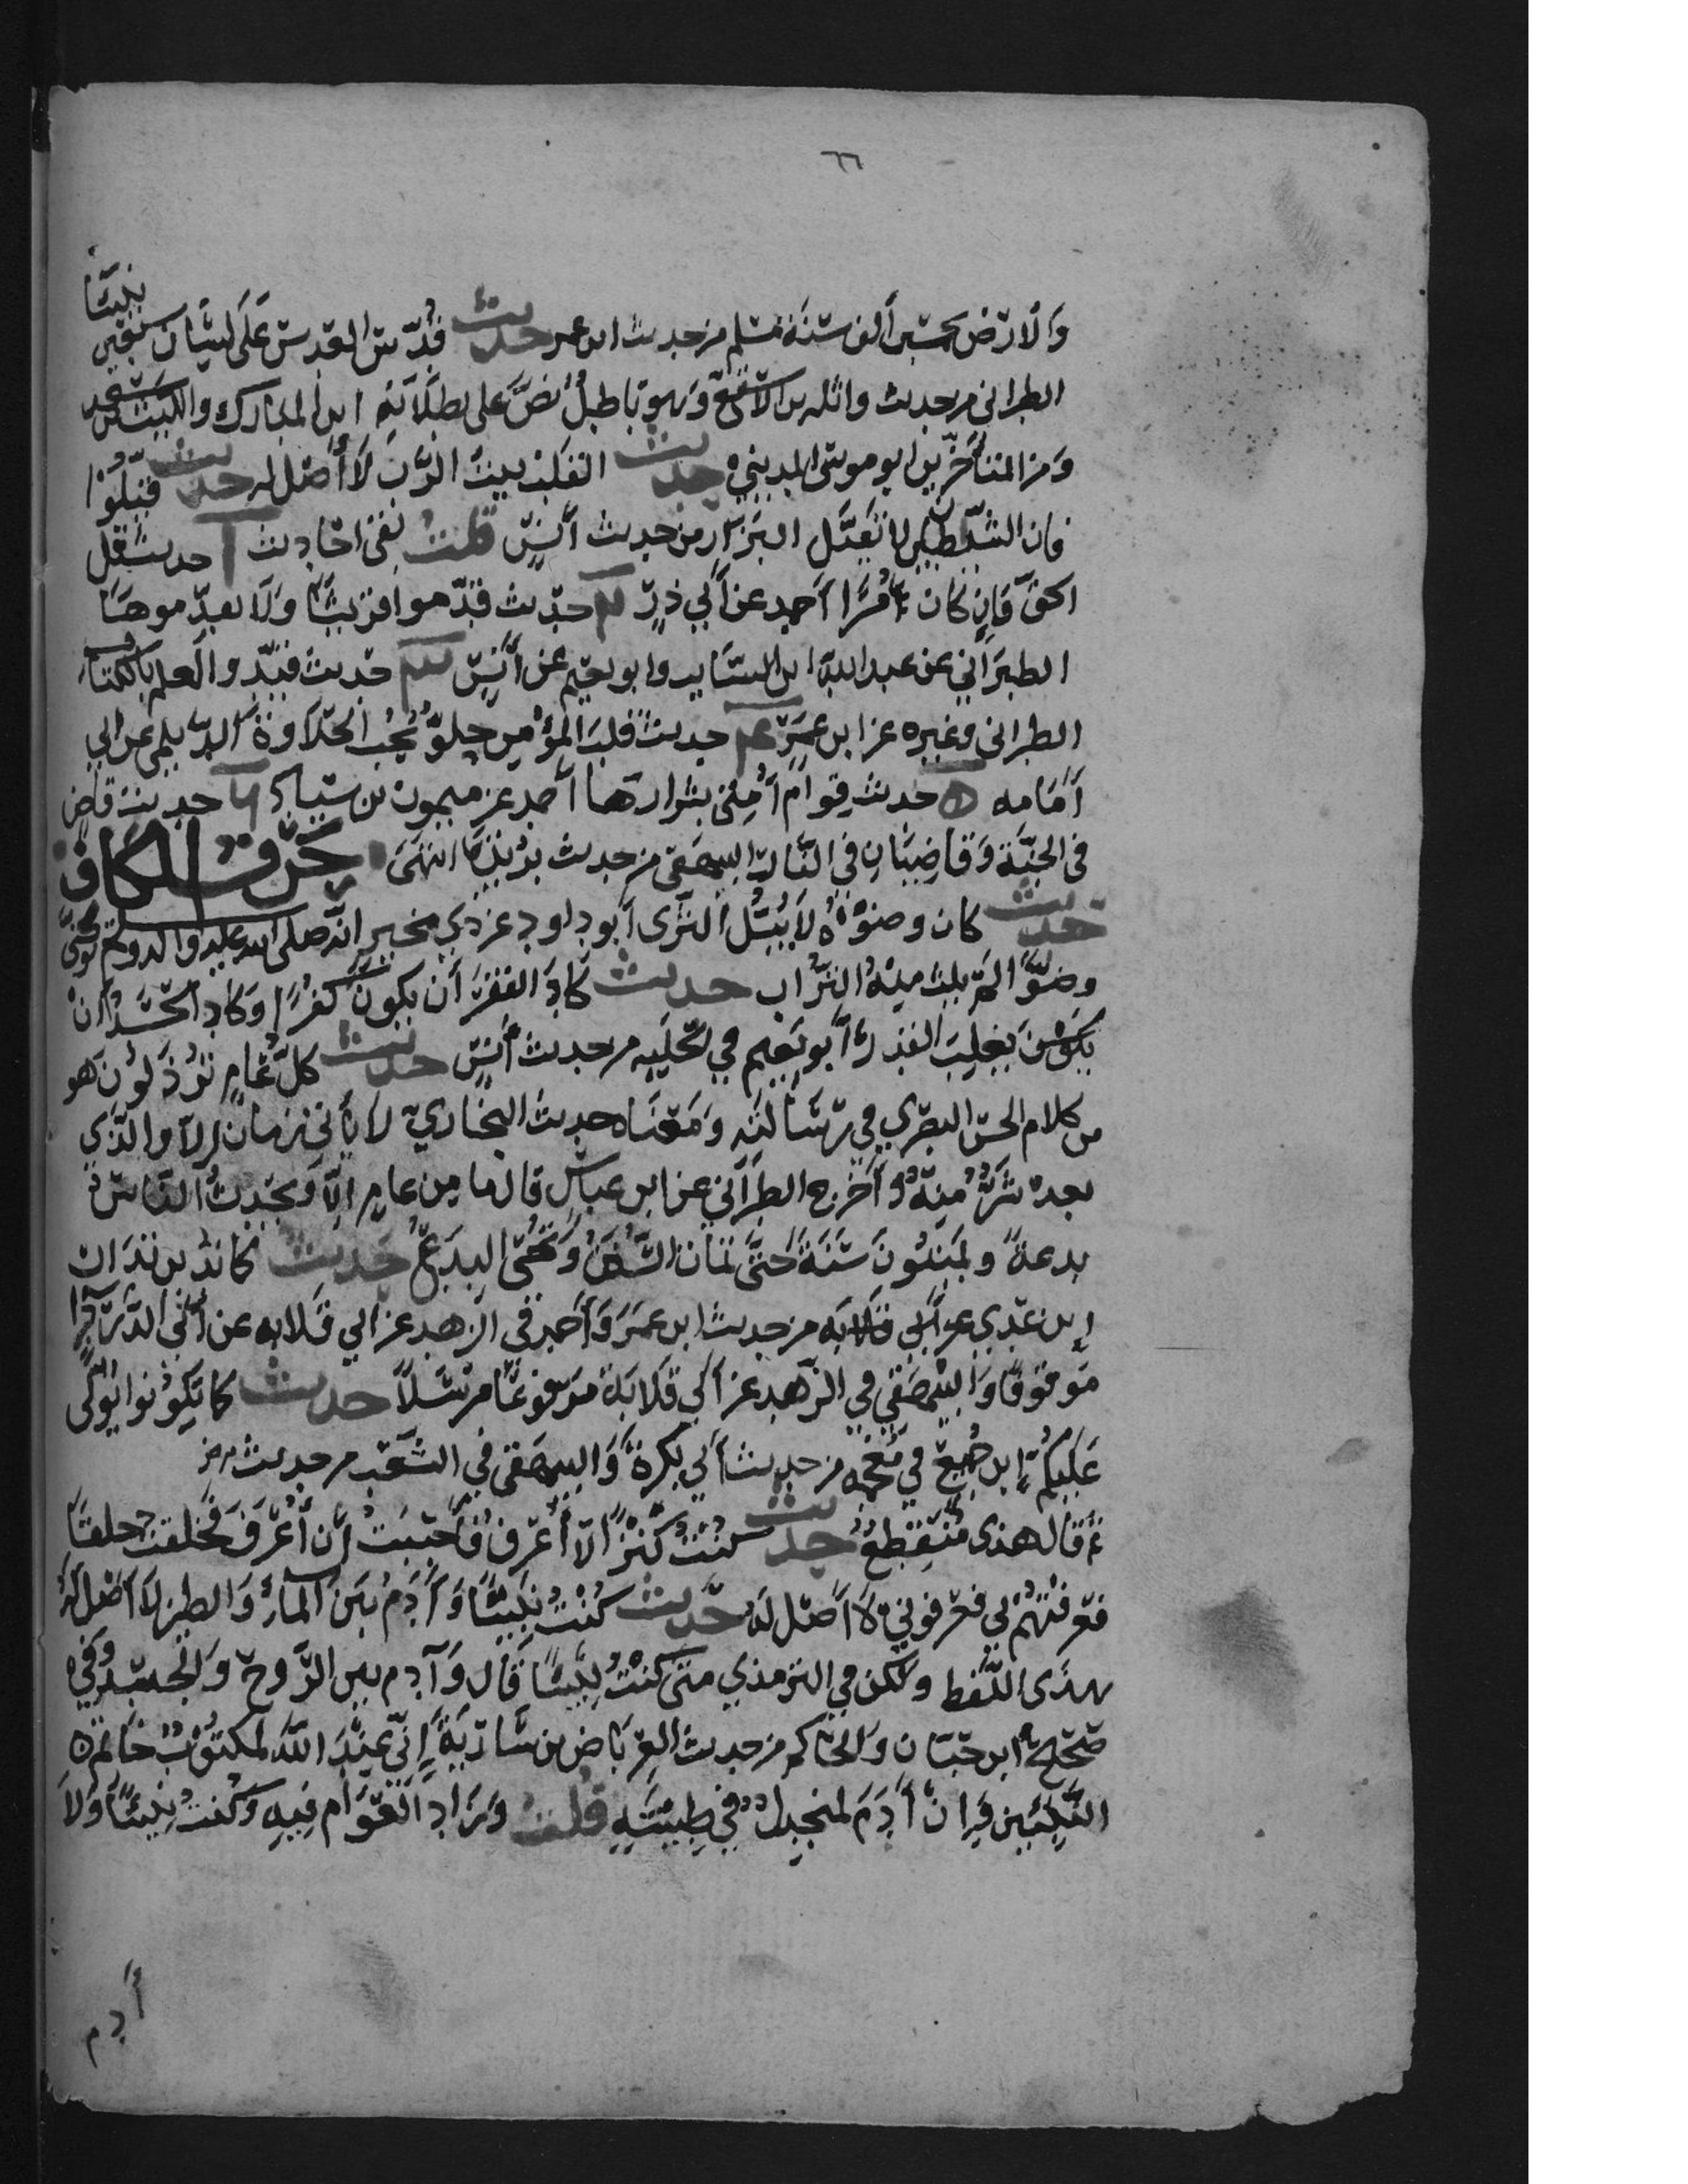 ٦٦
نبيًّا
والارض بخمسين ألف سنة مسلم من حديث ابن عمر حديث قُدّس العدس على لسان سبعين
الطبرانى من حديث واثله بن الاسقع وهو باطل نص على بطلانه ابن المبارك والليث بن سعد
ومن المتأخرين ابو موسى المديني حديث القلب بيت الرب لا أصل له حديث قيلوا
فان الشيطين لا تقيل البزار من حديث أنس قلت بقى احاديث ا حديث قل
الحق فان كان مُرًّا احمد عن أبي ذر حديث قدموا قريشا ولا تقدموها
الطبراني عن عبد الله ابن السايب وابو نعيم عن أنس حديث قيدوا العلم بالكتاب
الطبرانى وغيره عن ابن عمر حديث قلب المؤمن حلو يحب الحلاوة الديلمي عن ابي
أمامه ه حديث قوام أمتى بشرارها احمد عن ميمون بن سنباذ حديث قاض
في الجنة وقاضيان في النار البيهقى من حديث بريدة انتهى حرف الكاف
حديث كان وضوؤه لا يبتل الثرى أبو داود عن ذي مخبر انه صلى الله عليه واله وسلم توضى
وضوًا لم يلت منه التراب حديث كاد الفقر أن يكون كفرا وكاد الحسد أن
يكون يغلب القدر أبو نعيم في الحليه من حديث أنس حديث كل عام ترذلون هو
من كلام الحسن البصري في رسالته ومعناه حديث البخاري لا يأتى زمان الا والذى
بعده شر منه وأخرج الطبراني عن ابن عباس قال ما من عام الا ويحدث الناس
بدعة ويميتون سنة حتى تمات السنن وتحى البدع حديث كما تدين تدان
ابن عدي عن أبي قلابه من حديث ابن عمر وأحمد في الزهد عن ابي قلابه عن أبى الدرداء
موقوفا والبيهقي في الزهد عن أبي قلابة مرفوعا مرسلا حديث كما تكونوا يولى
عليكم ابن جميع في معجمه من حديث أبي بكرة والبيهقى في الشعب من حديث
ثم قال هذى منقطع حديث كنت كنزا لا أعرف فأحببت أن أعرف فخلقت خلقا
فعرفتهم بي فعرفوني لا أصل له حديث كنت نبيا وآدم بين الماء والطين لا أصل له
بهذى اللفظ ولكن في الترمذي متى كنت نبيا قال وآدم بين الروح والجسد وفي
صحيح ابن حبان والحاكم من حديث العرباض بن سارية إني عند الله لمكتوب خاتم
النبيين وان آدم لمنجدل في طينته قلت وزاد العوام فيه وكنت نبيئا ولا
آدم